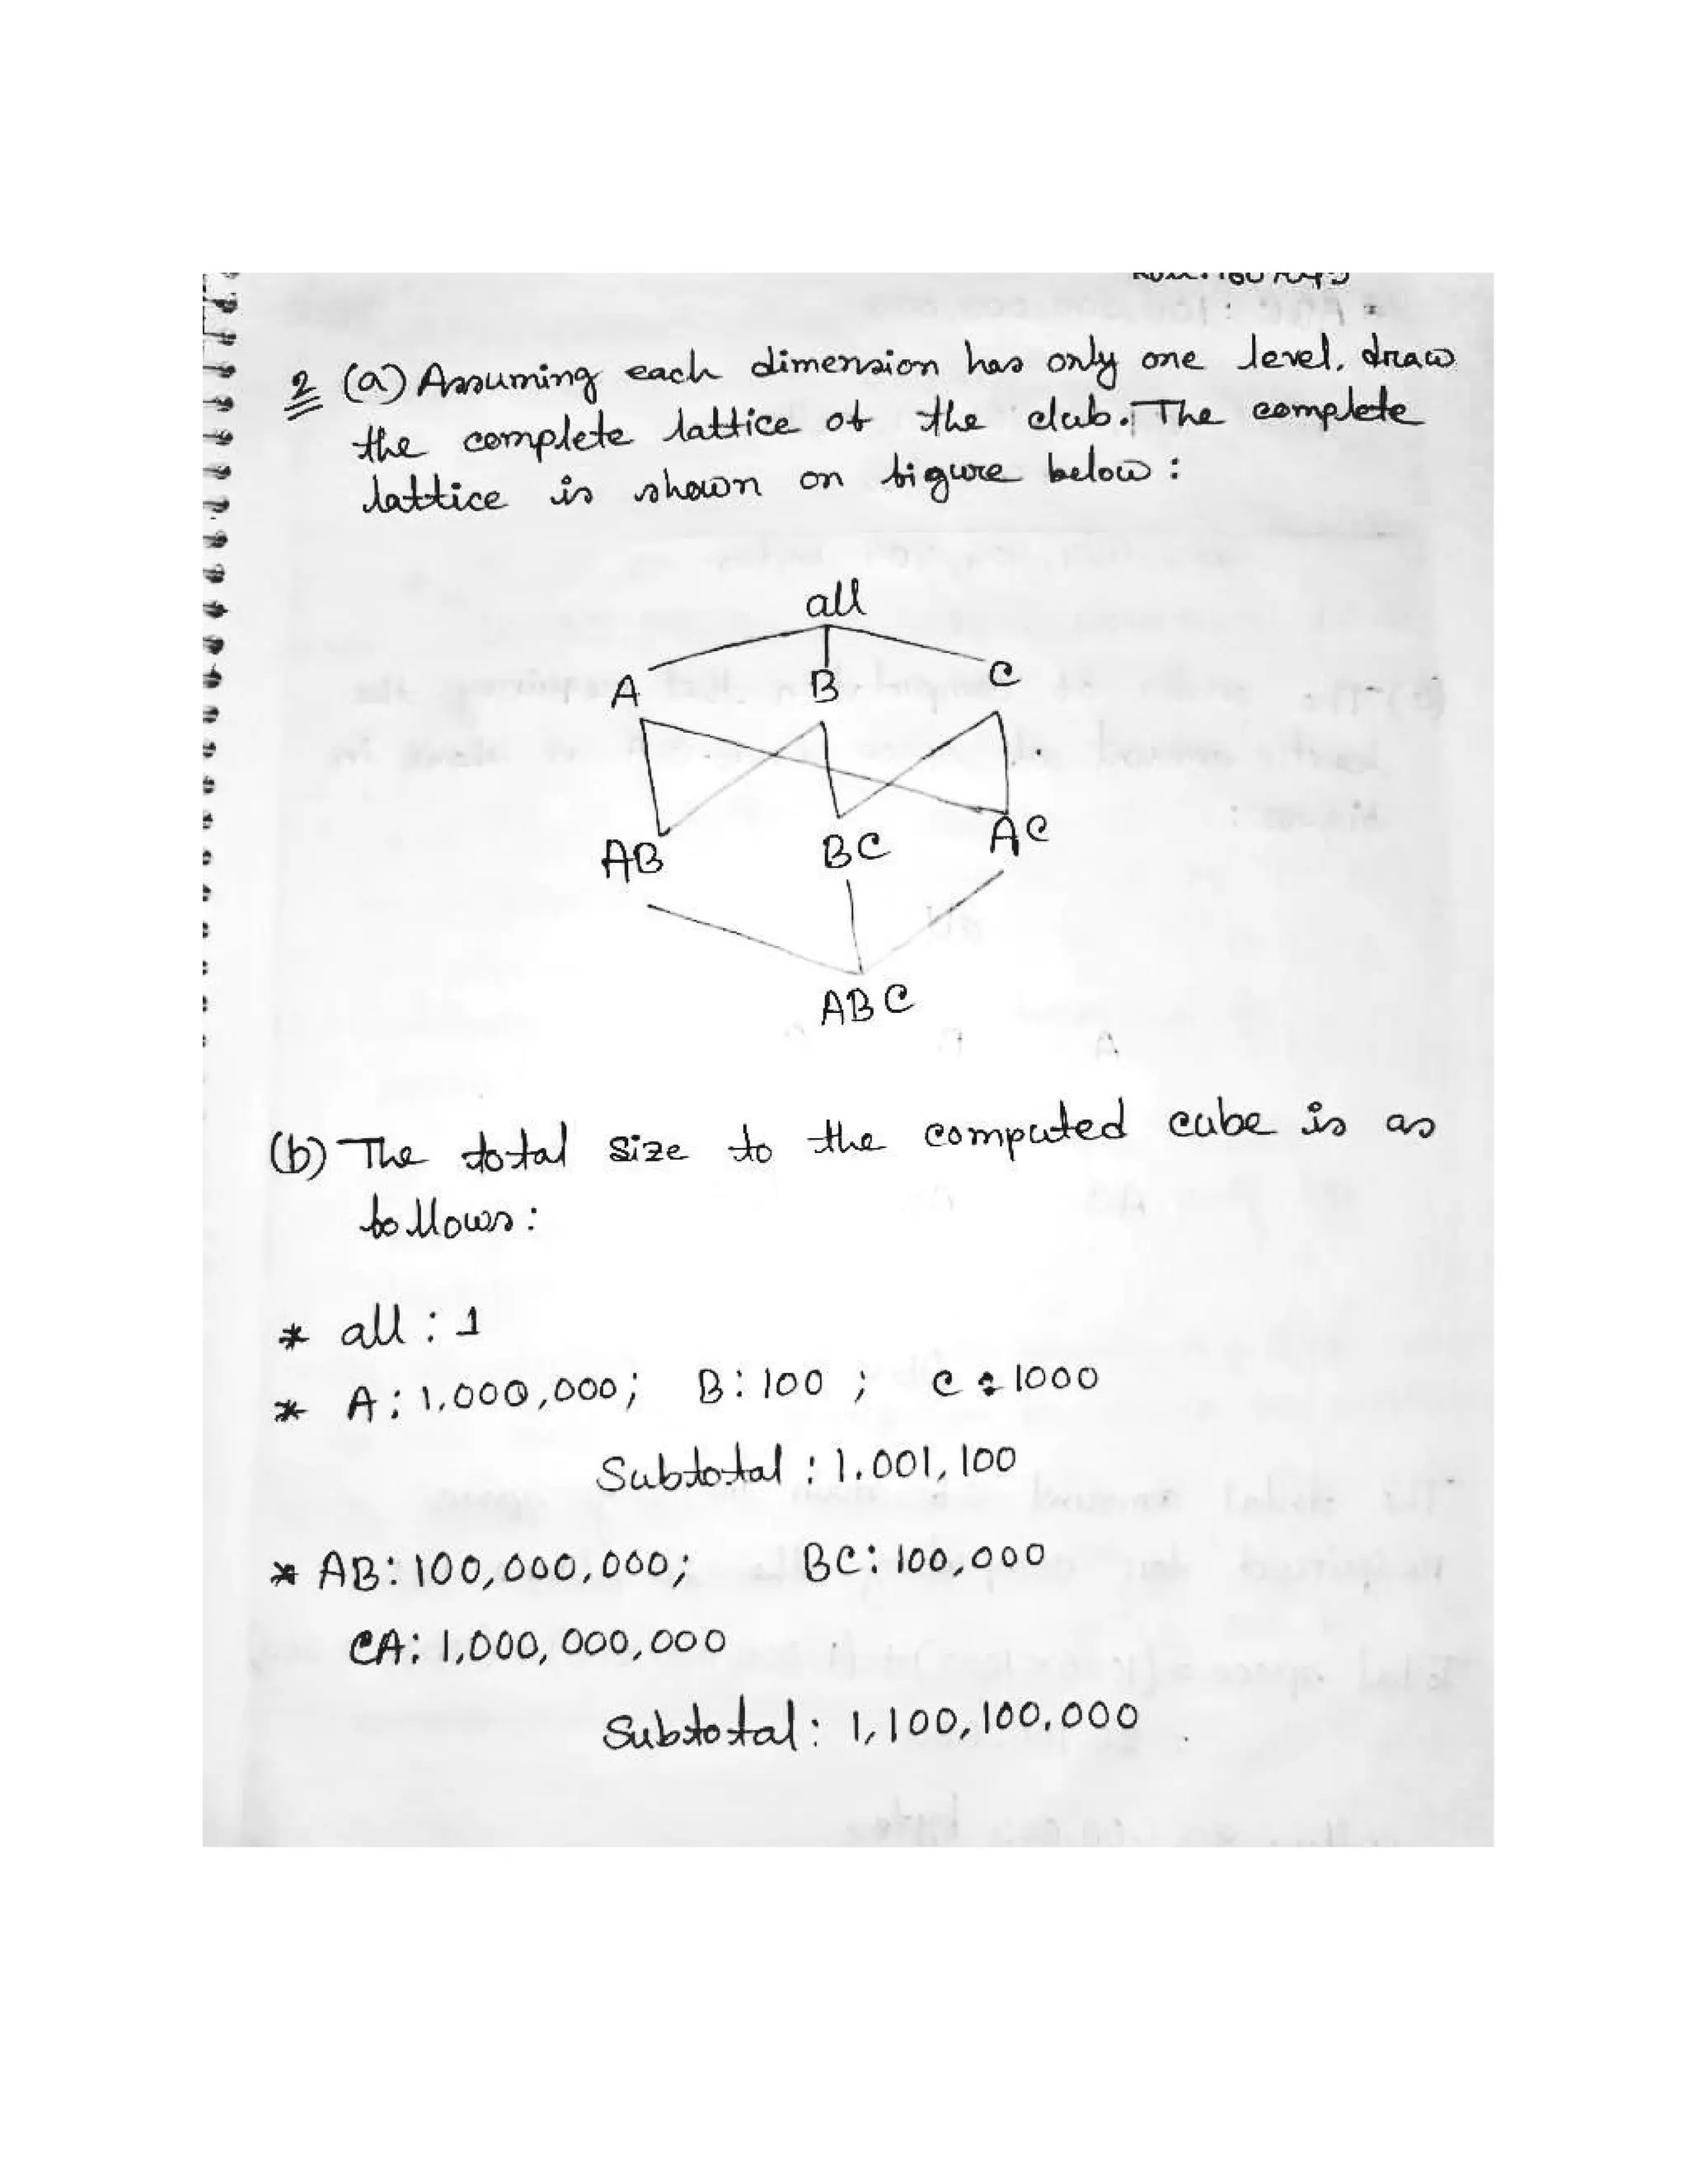 2 (a) Assuming each dimension has only one level, draw
the complete lattice of the club. The complete
lattice is shown on figure below :
all
A B C
AB BC AC
ABC
(b) The total size to the computed cube is as
follows :
* all : 1
* A : 1,000,000 ; B : 100 ; C : 1000
Subtotal : 1.001, 100
* AB : 100,000,000 ; BC : 100,000
CA : 1,000,000,000
Subtotal : 1,100,100,000